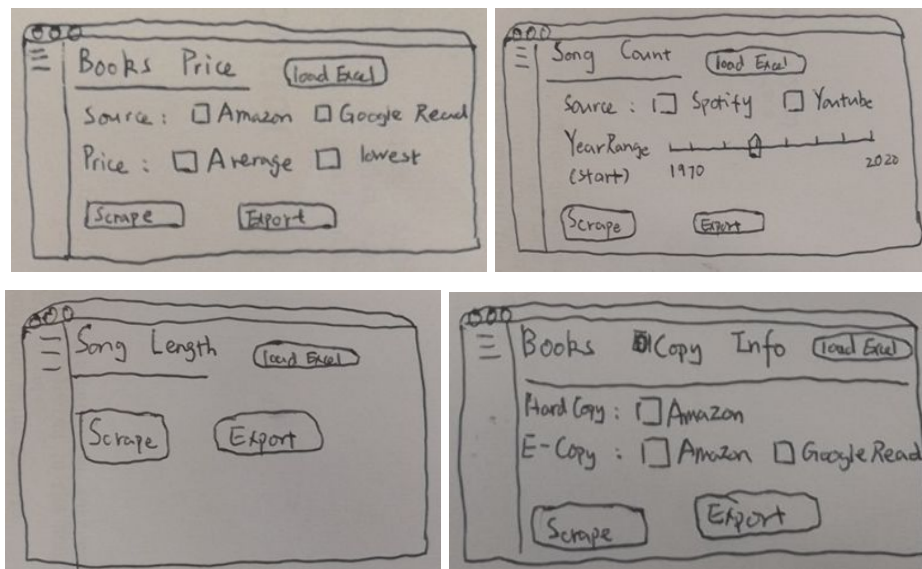 Books Price load Excel
Source : Amazon Google Read
Price : Average lowest
Scrape Export
Song Count load Excel
Source : Spotify Youtube
Year Range
(start) 1970 2020
Scrape Export
Song Length load Excel
Scrape Export
Books Copy Info load Excel
Hard Copy : Amazon
E-Copy : Amazon Google Read
Scrape Export